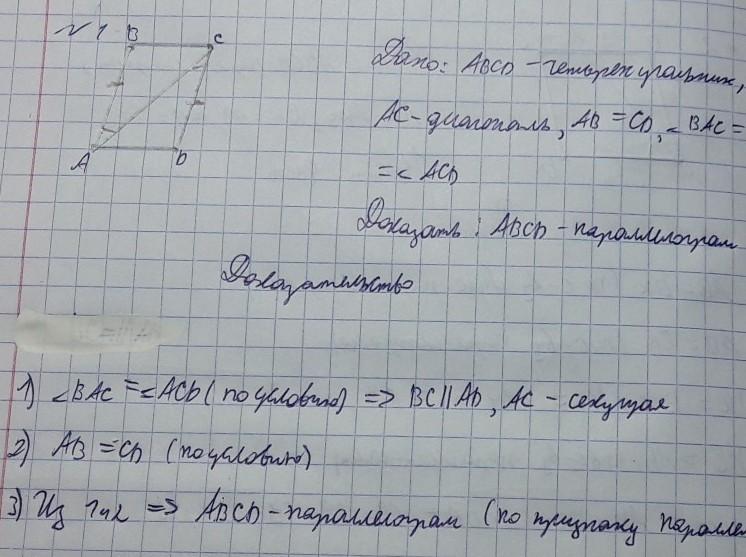 №1 B C
A D
Дано: ABCD - четырехугольник,
AC - диагональ, AB = CD, < BAC =
= < ACD
Доказать: ABCD - параллелограм
Доказательство
1) < BAC = < ACD (по условию) => BC || AD, AC - секущая
2) AB = CD (по условию)
3) Из 1 и 2 => ABCD - параллелограм (по признаку паралле